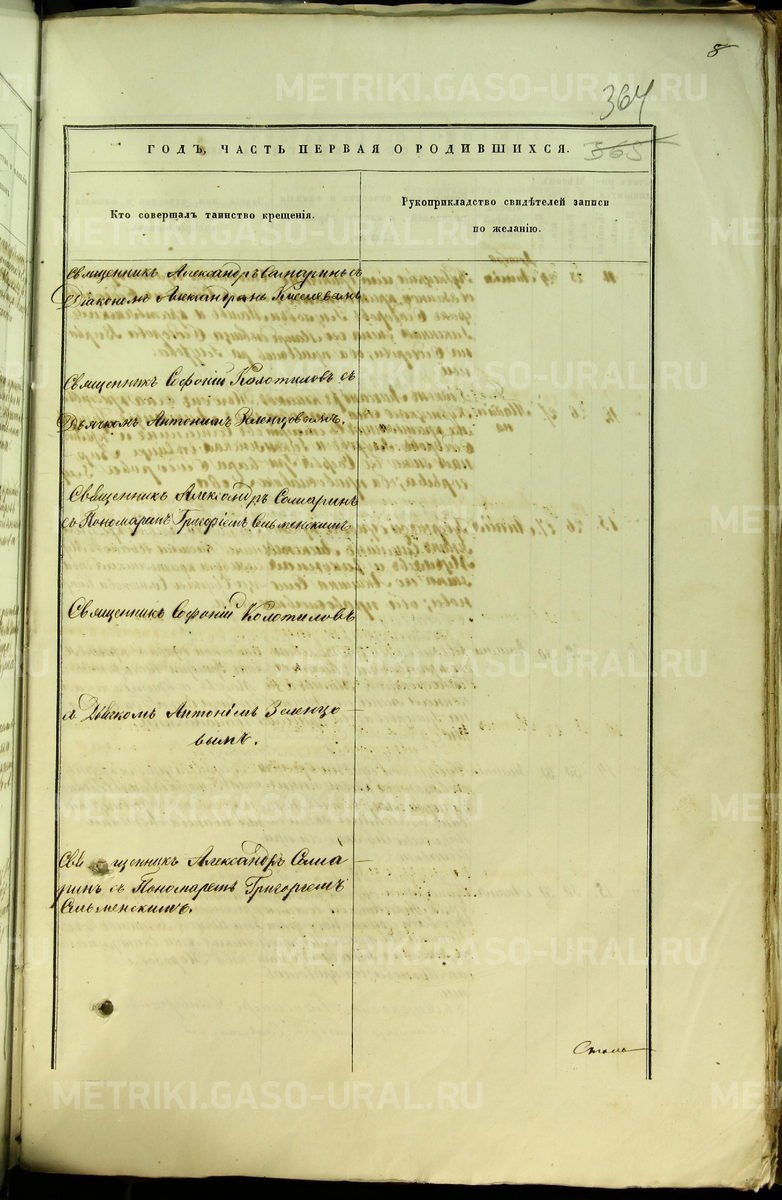 8
364
ГОДЪ, ЧАСТЬ ПЕРВАЯ О РОДИВШИХСЯ.
365
Кто совершалъ таинство крещенія.
Рукоприкладство свидѣтелей записи
по желанію.
Священникъ Александръ Самаринъ съ
Діакономъ Александромъ Киселевымъ
Священникъ Софоній Колотиловъ съ
Дьячкомъ Антоніемъ Зеленцовымъ.
Священникъ Александръ Самаринъ
съ Пономаремъ Григоріемъ Сельменскимъ
Священникъ Софоній Колотиловъ
съ Дьячкомъ Антоніемъ Зеленцо
вымъ.
Священникъ Александръ Сама
ринъ съ Пономаремъ Григоріемъ
Сельменскимъ.
METRIKI.GASO-URAL.RU